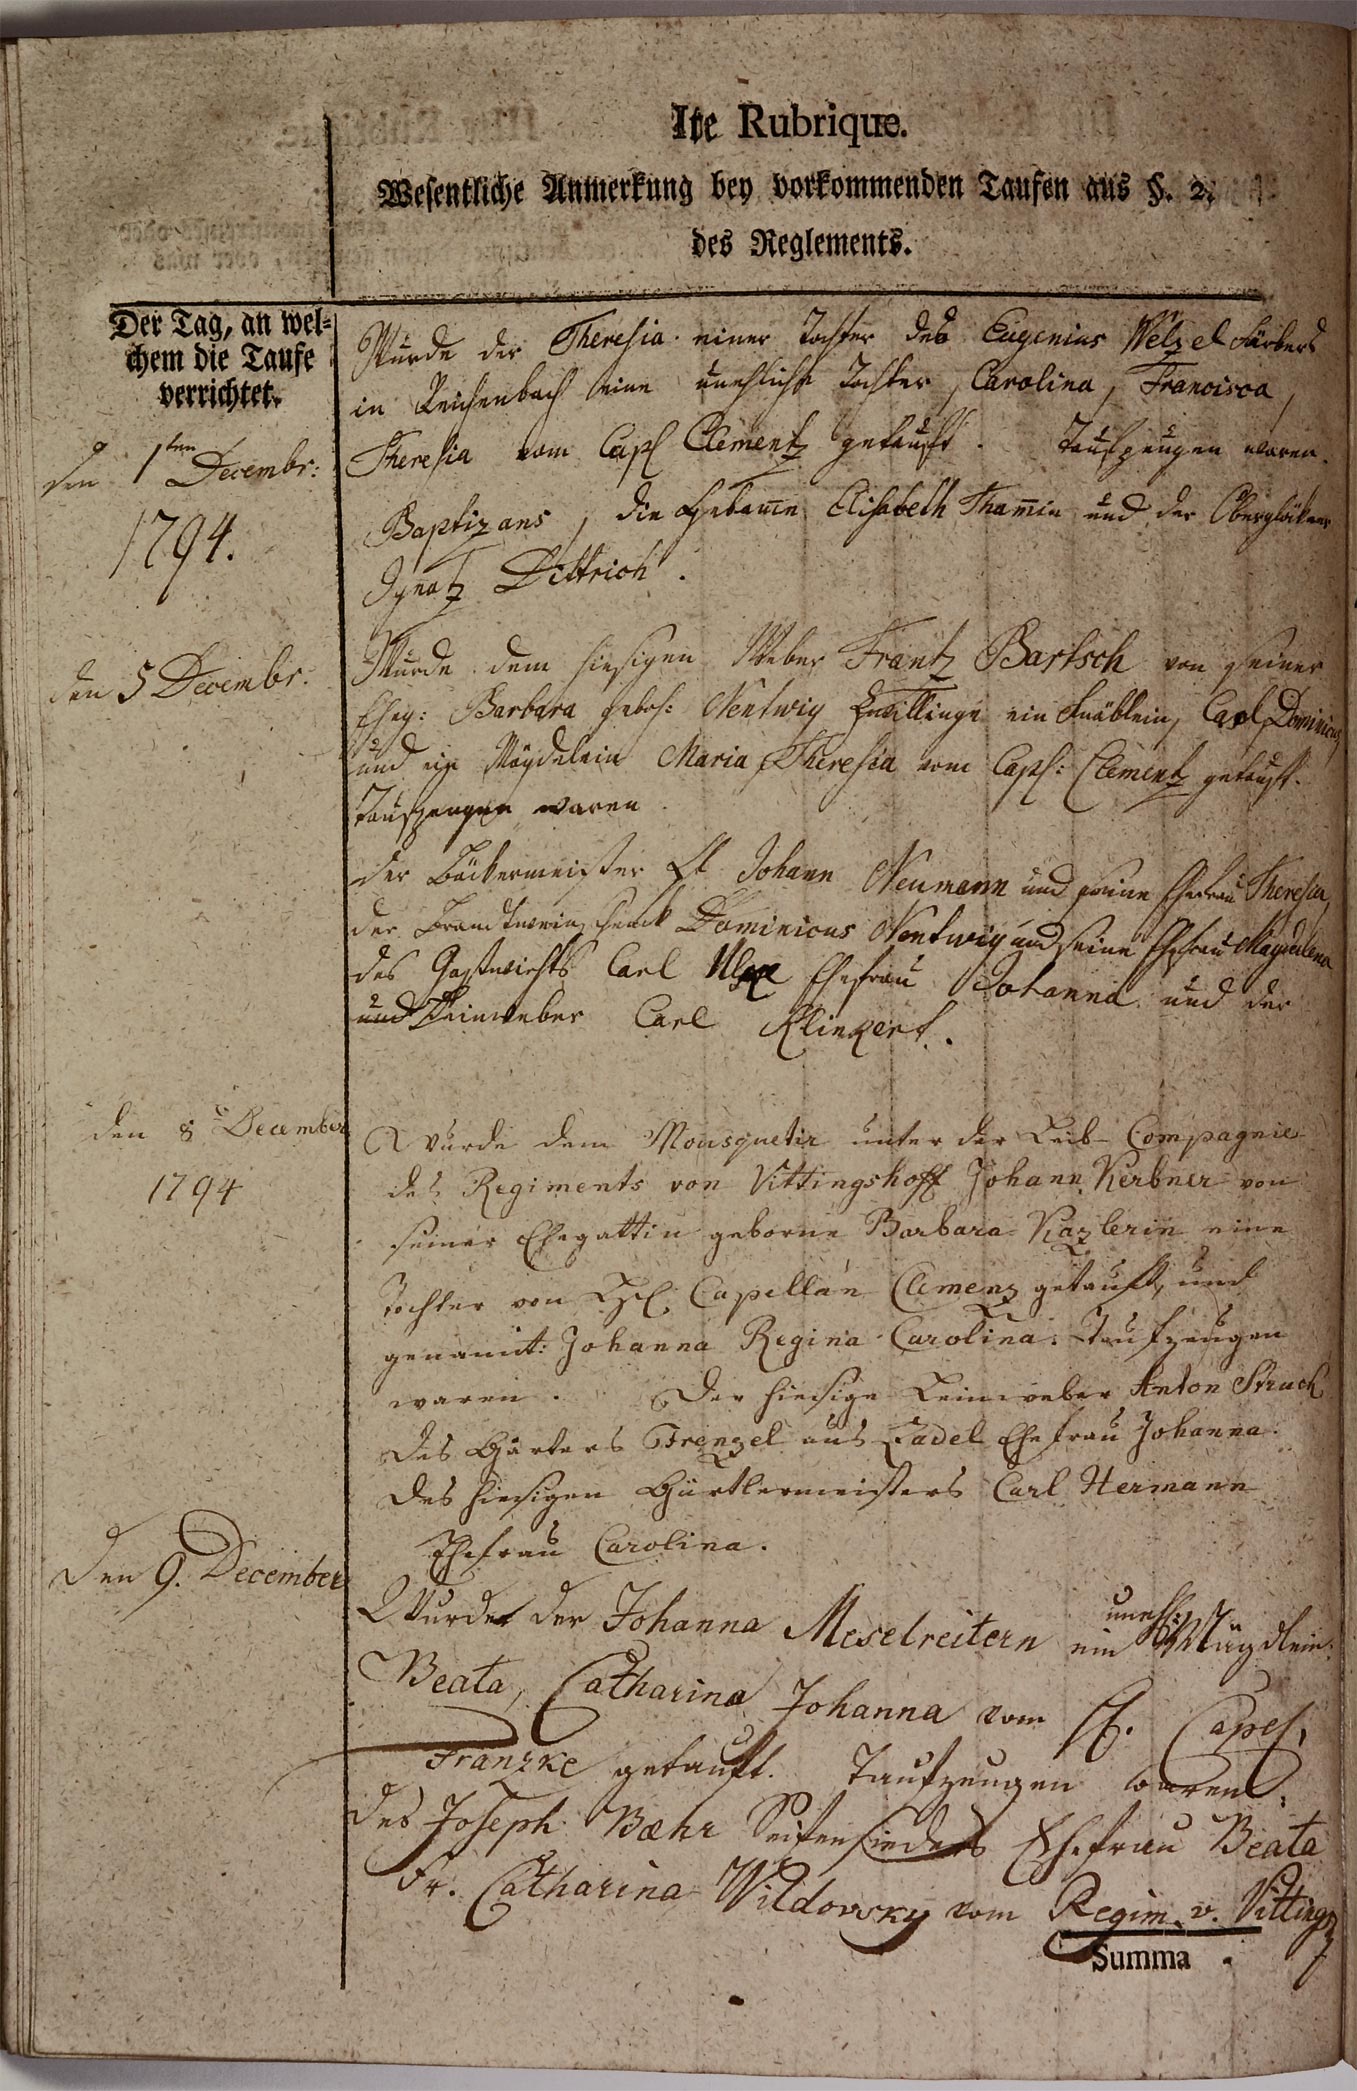 Ite Rubrique.
Wesentliche Anmerkung bey vorkommenden Taufen aus §. 2.
des Reglements.
Der Tag, an wel-
chem die Taufe
verrichtet.
den 1sten Decembr:
1794.
Wurde der Theresia einer Tochter des Eugenius Welzel Färbers
in Reichenbach eine unehliche Tochter, Carolina, Francisca,
Theresia vom Capl Clementz getauft. Taufzeugen waren.
Baptizans, die Hebame Elisabeth Thamin und der Oberglökner
Ignatz Dittrich.
den 5 Decembr.
Wurde dem hiesigen Weber Frantz Bartsch von seiner
Eheg: Barbara geboh: Nentwig Zwillinge ein Knäblein, Carl Dominicus
und ein Mägdelein Maria Theresia vom Capl: Clementz getauft.
Taufzeugen waren.
der Bäckermeister H Johann Neumann und seine Ehefrau Theresia,
der Brandtwein schenck Dominicus Nentwig und seine Ehefrau Magdalena
des Gastwirths Carl Ehefrau Johanna und der
und Leinweber Carl Klinkert.
den 8t December
1794
Wurde dem Mousquetir unter der Leib-Compagnie
des Regiments von Vittingshoff Johann Kerbner von
seiner Ehegattin geborne Barbara Kazlerin eine
Tochter von Capellan Clemenz getauft, und
genannt: Johanna Regina Carolina. Taufzeugen
waren. Der hiesige Leinweber Anton Struch
des Gärters Frenzel aus Zadel Ehefrau Johanna.
des hiesigen Gürtlermeisters Carl Hermann
Ehefrau Carolina.
den 9. December
Wurde der Johanna Meselreitern ein unehl: Mägdlein:
Beata, Catharina Johanna vom H. Capel.
Franzke getauft. Taufzeugen waren:
des Joseph Bæhr Seifensieders Ehefrau Beata
Fr. Catharina Wildowsky vom Regim. v. Vitting
Summa